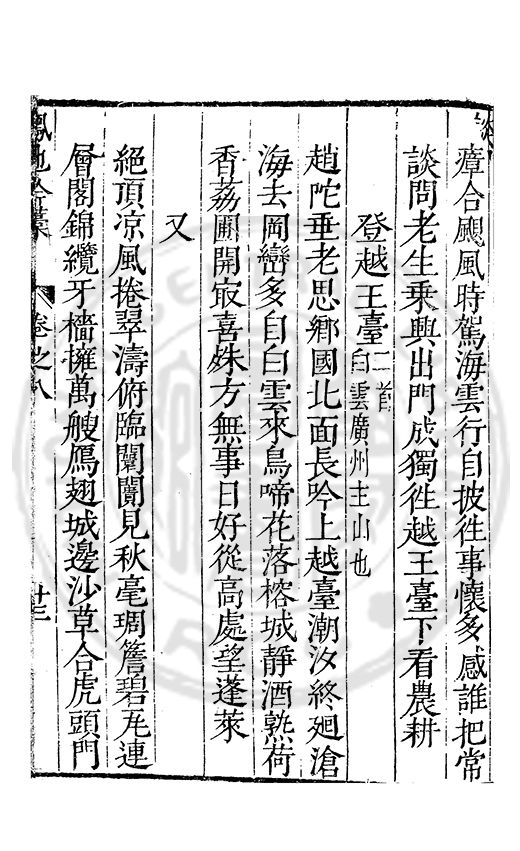 瘴合颶風時駕海雲行自披徃事懷多感誰把常
談問老生乗興出門成獨徃越王臺下看農耕
登越王臺二首白雲廣州主山也
趙陀垂老思鄉國北面長吟上越臺潮汐終廻滄
海去岡巒多自白雲來鳥啼花落榕城靜酒熟荷
香荔圃開㝡喜殊方無事日好從高處望蓬萊
又
絕頂凉風捲翠濤俯臨闤闠見秋毫琱簷碧瓦連
層閣錦纜牙檣擁萬艘鴈翅城邊沙草合虎頭門
卷之八
十三